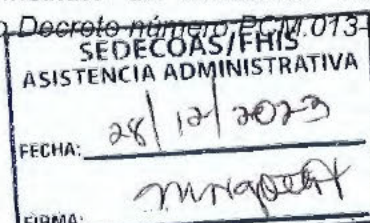 Decreto número PCM.013-
SEDECOAS/FHIS
ASISTENCIA ADMINISTRATIVA
FECHA: 28/12/2023
FIRMA: